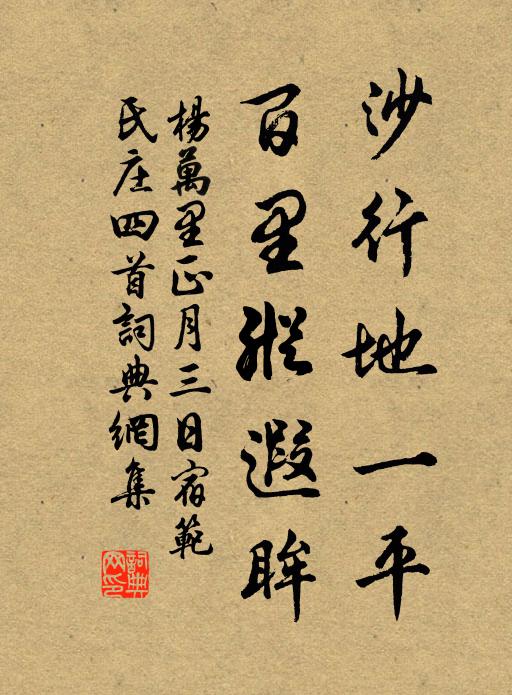 沙行地一平
百里縱遐眸
楊萬里正月三日宿範
氏庄四首詞典網集
詞典
网印